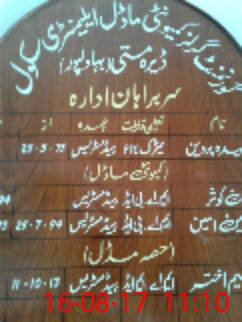 گورنمنٹ گرلز کمیونٹی ماڈل ایلیمنٹری سکول
ڈیرہ مستی (بہاولپور)
سربراہان ادارہ
نام تعلیمی قابلیت عہدہ از
پروین میٹرک PTC ہیڈمسٹریس 25-5-75
(کمیونٹی ماڈل)
کوثر ایم اے بی ایڈ ہیڈمسٹریس
امین ایم اے بی ایڈ ہیڈمسٹریس 25-7-94
(حصہ مڈل)
اختر ایم اے ایم ایڈ ہیڈمسٹریس 11-10-17
16-08-17 11:10